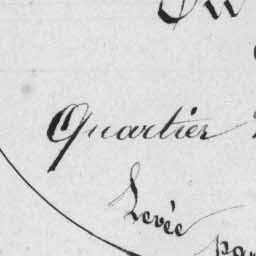 Quartier
Levée
par